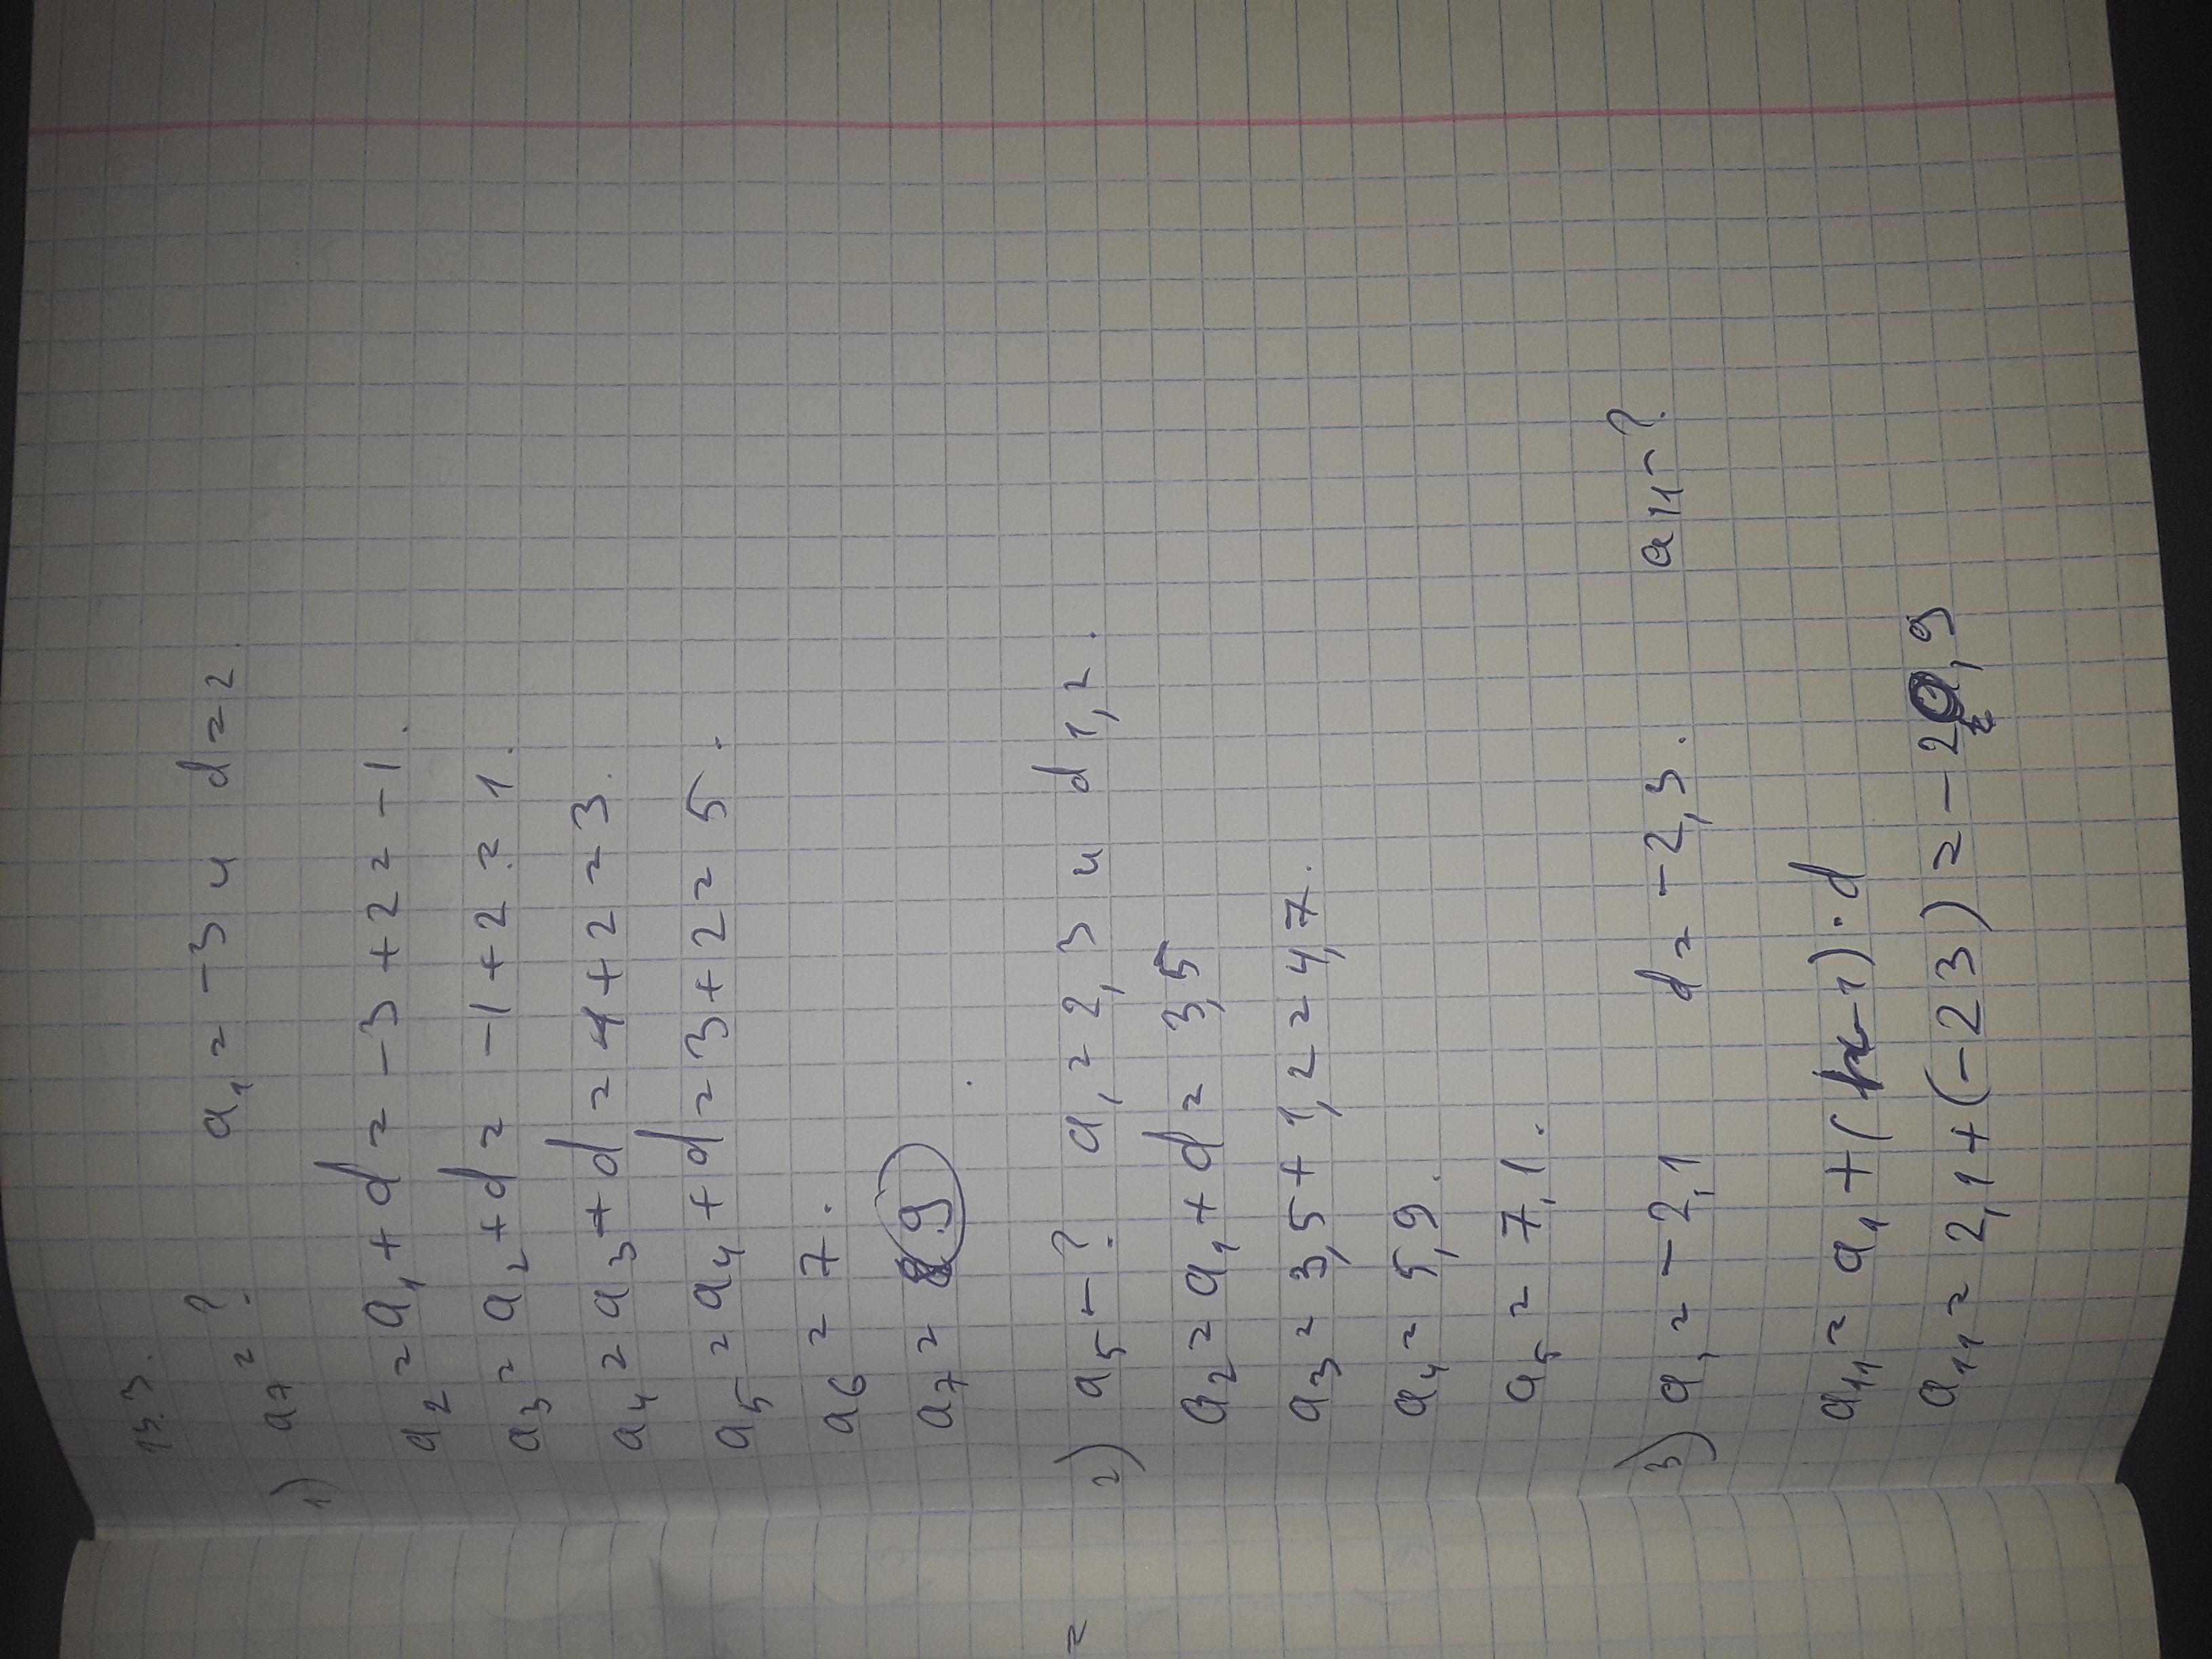 15.3.
1) a₇ = ? a₁ = -3 и d = 2.
a₂ = a₁ + d = -3 + 2 = -1.
a₃ = a₂ + d = -1 + 2 = 1.
a₄ = a₃ + d = 1 + 2 = 3.
a₅ = a₄ + d = 3 + 2 = 5.
a₆ = 7.
a₇ = 9
2) a₅ - ? a₁ = 2,3 и d 1,2.
a₂ = a₁ + d = 3,5
a₃ = 3,5 + 1,2 = 4,7.
a₄ = 5,9.
a₅ = 7,1.
3) a₁ = -2,1 d = -2,3. a₁₁ - ?
a₁₁ = a₁ + (n-1)·d
a₁₁ = 2,1 + (-23) = -20,9
=